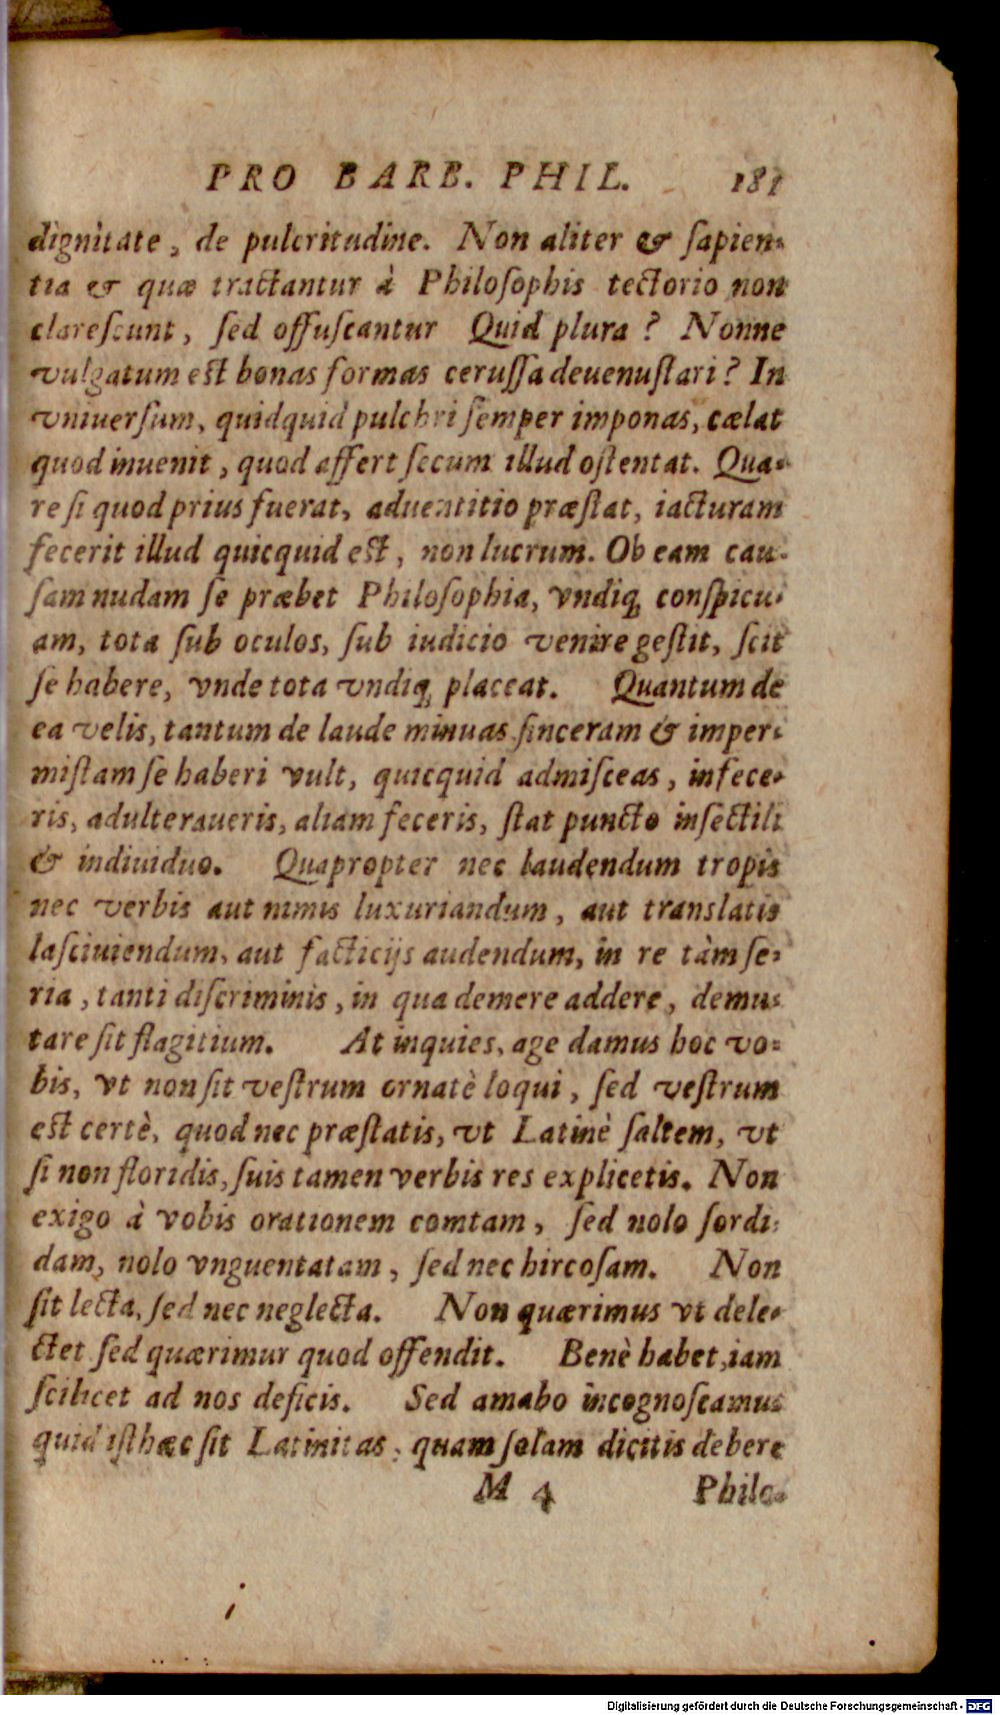 PRO BARB. PHIL. 181
dignitate, de pulcritudine. Non aliter & ſapien-
tia & quæ tractantur à Philoſophis tectorio non
clareſcunt, ſed offuſcantur Quid plura? Nonne
vulgatum eſt bonas formas ceruſſa deuenuſtari? In
vniuerſum, quidquid pulchri ſemper imponas, cælat
quod inuenit, quod affert ſecum illud oſtentat. Qua-
re ſi quod prius fuerat, aduentitio præſtat, iacturam
fecerit illud quicquid eſt, non lucrum. Ob eam cau-
ſam nudam ſe præbet Philoſophia, vndiq; conſpicu-
am, tota ſub oculos, ſub iudicio venire geſtit, ſcit
ſe habere, vnde tota vndiq; placeat. Quantum de
ea velis, tantum de laude minuas ſinceram & imper-
miſtam ſe haberi vult, quicquid admiſceas, infece-
ris, adulteraueris, aliam feceris, ſtat puncto inſectili
& indiuiduo. Quapropter nec laudendum tropis
nec verbis aut nimis luxuriandum, aut translatis
laſciuiendum, aut facticijs audendum, in re tàm ſe-
ria, tanti diſcriminis, in qua demere addere, demu-
tare ſit flagitium. At inquies, age damus hoc vo-
bis, vt non ſit veſtrum ornatè loqui, ſed veſtrum
eſt certè, quod nec præſtatis, vt Latinè ſaltem, vt
ſi non floridis, ſuis tamen verbis res explicetis. Non
exigo à vobis orationem comtam, ſed nolo ſordi-
dam, nolo vnguentatam, ſed nec hircoſam. Non
ſit lecta, ſed nec neglecta. Non quærimus vt dele-
ctet ſed quærimur quod offendit. Benè habet, iam
ſcilicet ad nos deficis. Sed amabo incognoſcamus
quid iſthæc ſit Latinitas, quam ſolam dicitis debere
M 4 Philo-
Digitalisierung gefördert durch die Deutsche Forschungsgemeinschaft - DFG